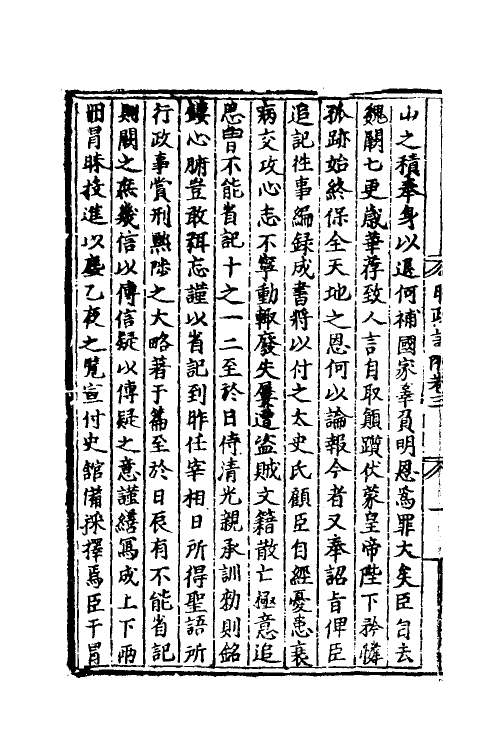 山之積奉身以退何補國家辜負明恩爲罪大矣臣自去
魏闕七更歲華荐致人言自取顛躓伏蒙皇帝陛下矜憐
孤跡始終保全天地之恩何以論報今者又奉詔旨俾臣
追記徃事編録成書將以付之太史氏顧臣自經憂患衰
病交攻心志不寧動輒廢失屢遭盜賊文籍散亡極意追
思曾不能省記十之一二至於日侍清光親承訓勅則銘
鏤心腑豈敢弭忘謹以省記到昨任宰相日所得聖語所
行政事賞刑黜陟之大略著于篇至於日辰有不能省記
則闕之庶幾信以傳信疑以傳疑之意謹繕寫成上下兩
冊冒昧投進以塵乙夜之覽宣付史館備採擇焉臣干冒
時政記 卷三